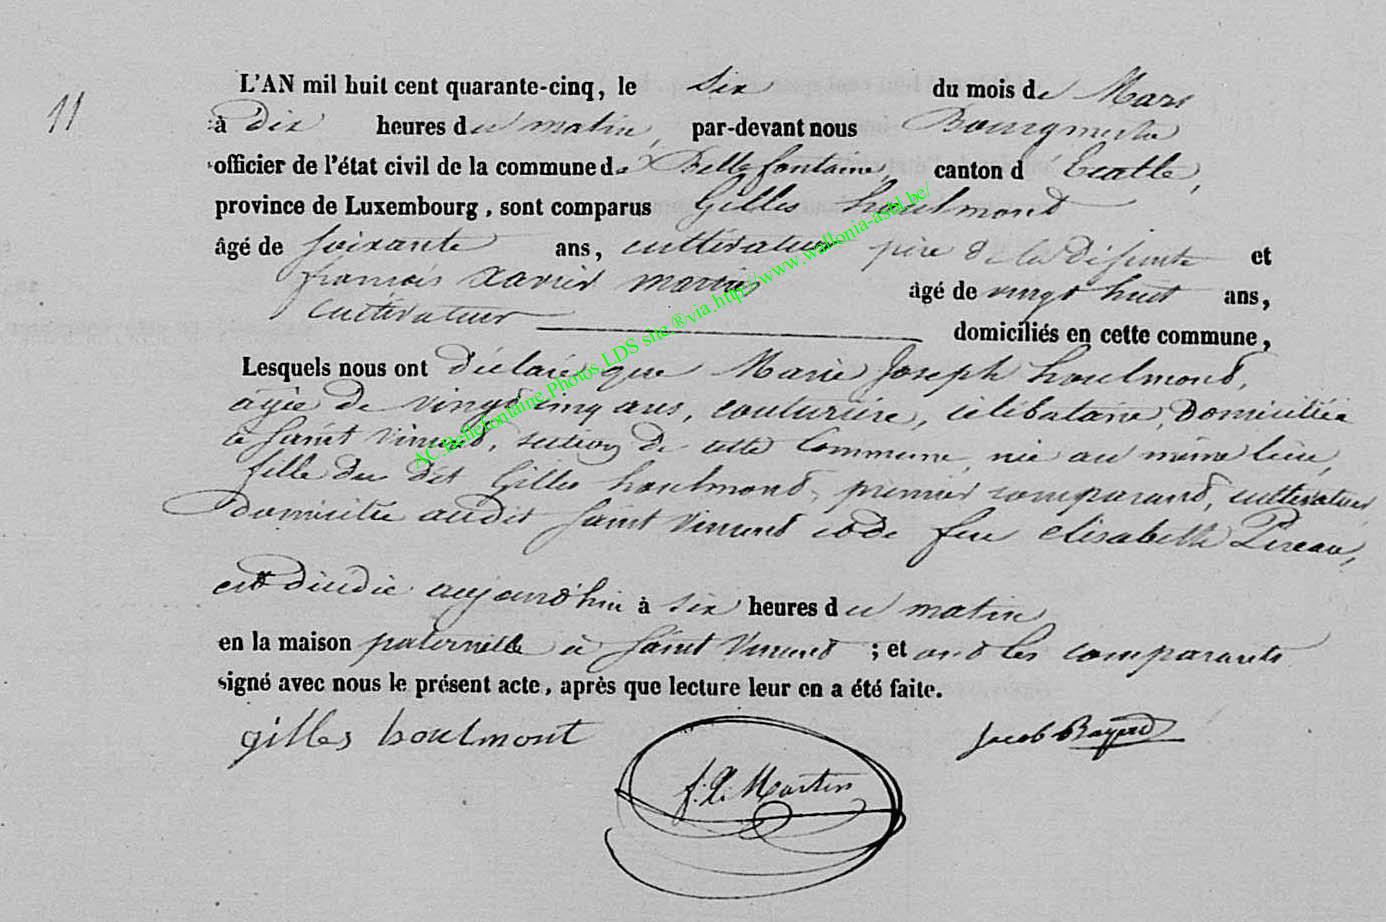 11
L'AN mil huit cent quarante-cinq, le six du mois de Mars
à dix heures du matin, par-devant nous Bourgmestre
officier de l'état civil de la commune de Bellefontaine, canton d'Etalle,
province de Luxembourg, sont comparus Gilles houlmond
âgé de soixante ans, cultivateur père de la défunte et
françois xavier martin âgé de vingt huit ans,
cultivateur domiciliés en cette commune,
Lesquels nous ont déclaré que Marie Joseph houlmond,
agée de vingt cinq ans, couturière, célibataire, domiciliée
à Saint Vincent, section de cette Commune, née au même lieu,
fille du dit Gilles houlmond, premier comparant, cultivateur,
domicilié audit Saint Vincent et de feu elisabeth Pireau,
est décédée aujourd'hui à six heures du matin
en la maison paternelle à Saint Vincent ; et ont les comparants
signé avec nous le présent acte, après que lecture leur en a été faite.
gilles houlmont
f. X. Martin
Jacob Bayard
AC.Bellefontaine.Photos.LDS site ®via.http://www.wallonia-asbl.be/